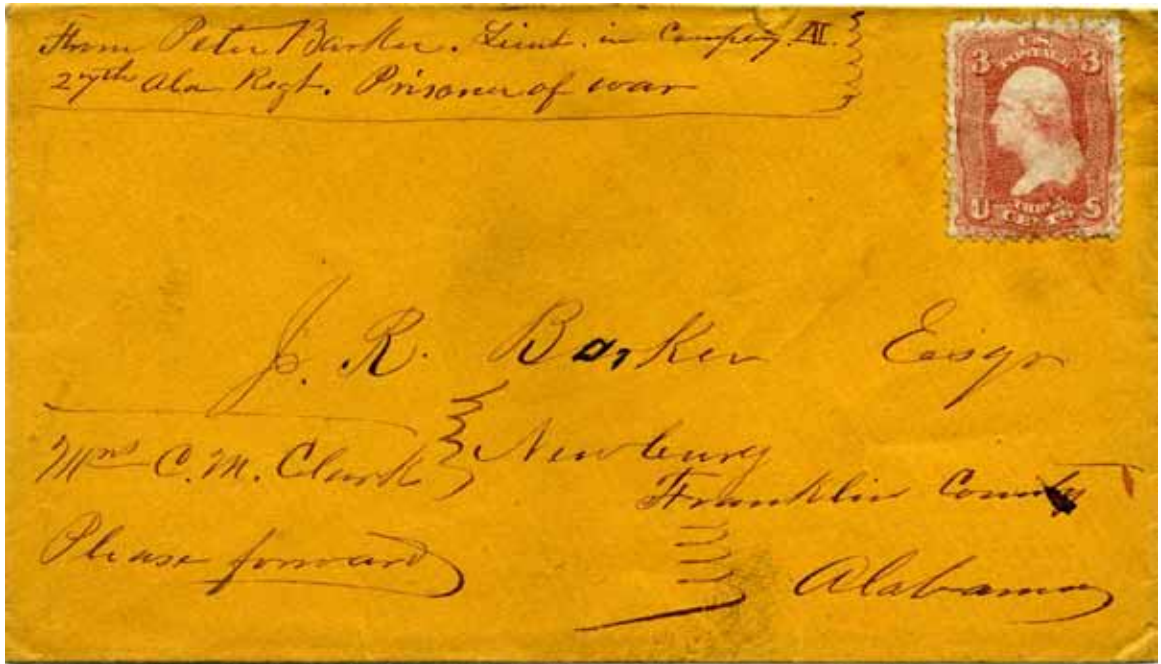 From Peter Barker. Lieut. in Company
27th Ala Regt. Prisoner of war
U.S.
POSTAGE
3 3
U THREE S
CENTS
J. R. Barker Esqr
Mrs C. M. Clark
Newburg
Franklin County
Please forward
Alabama